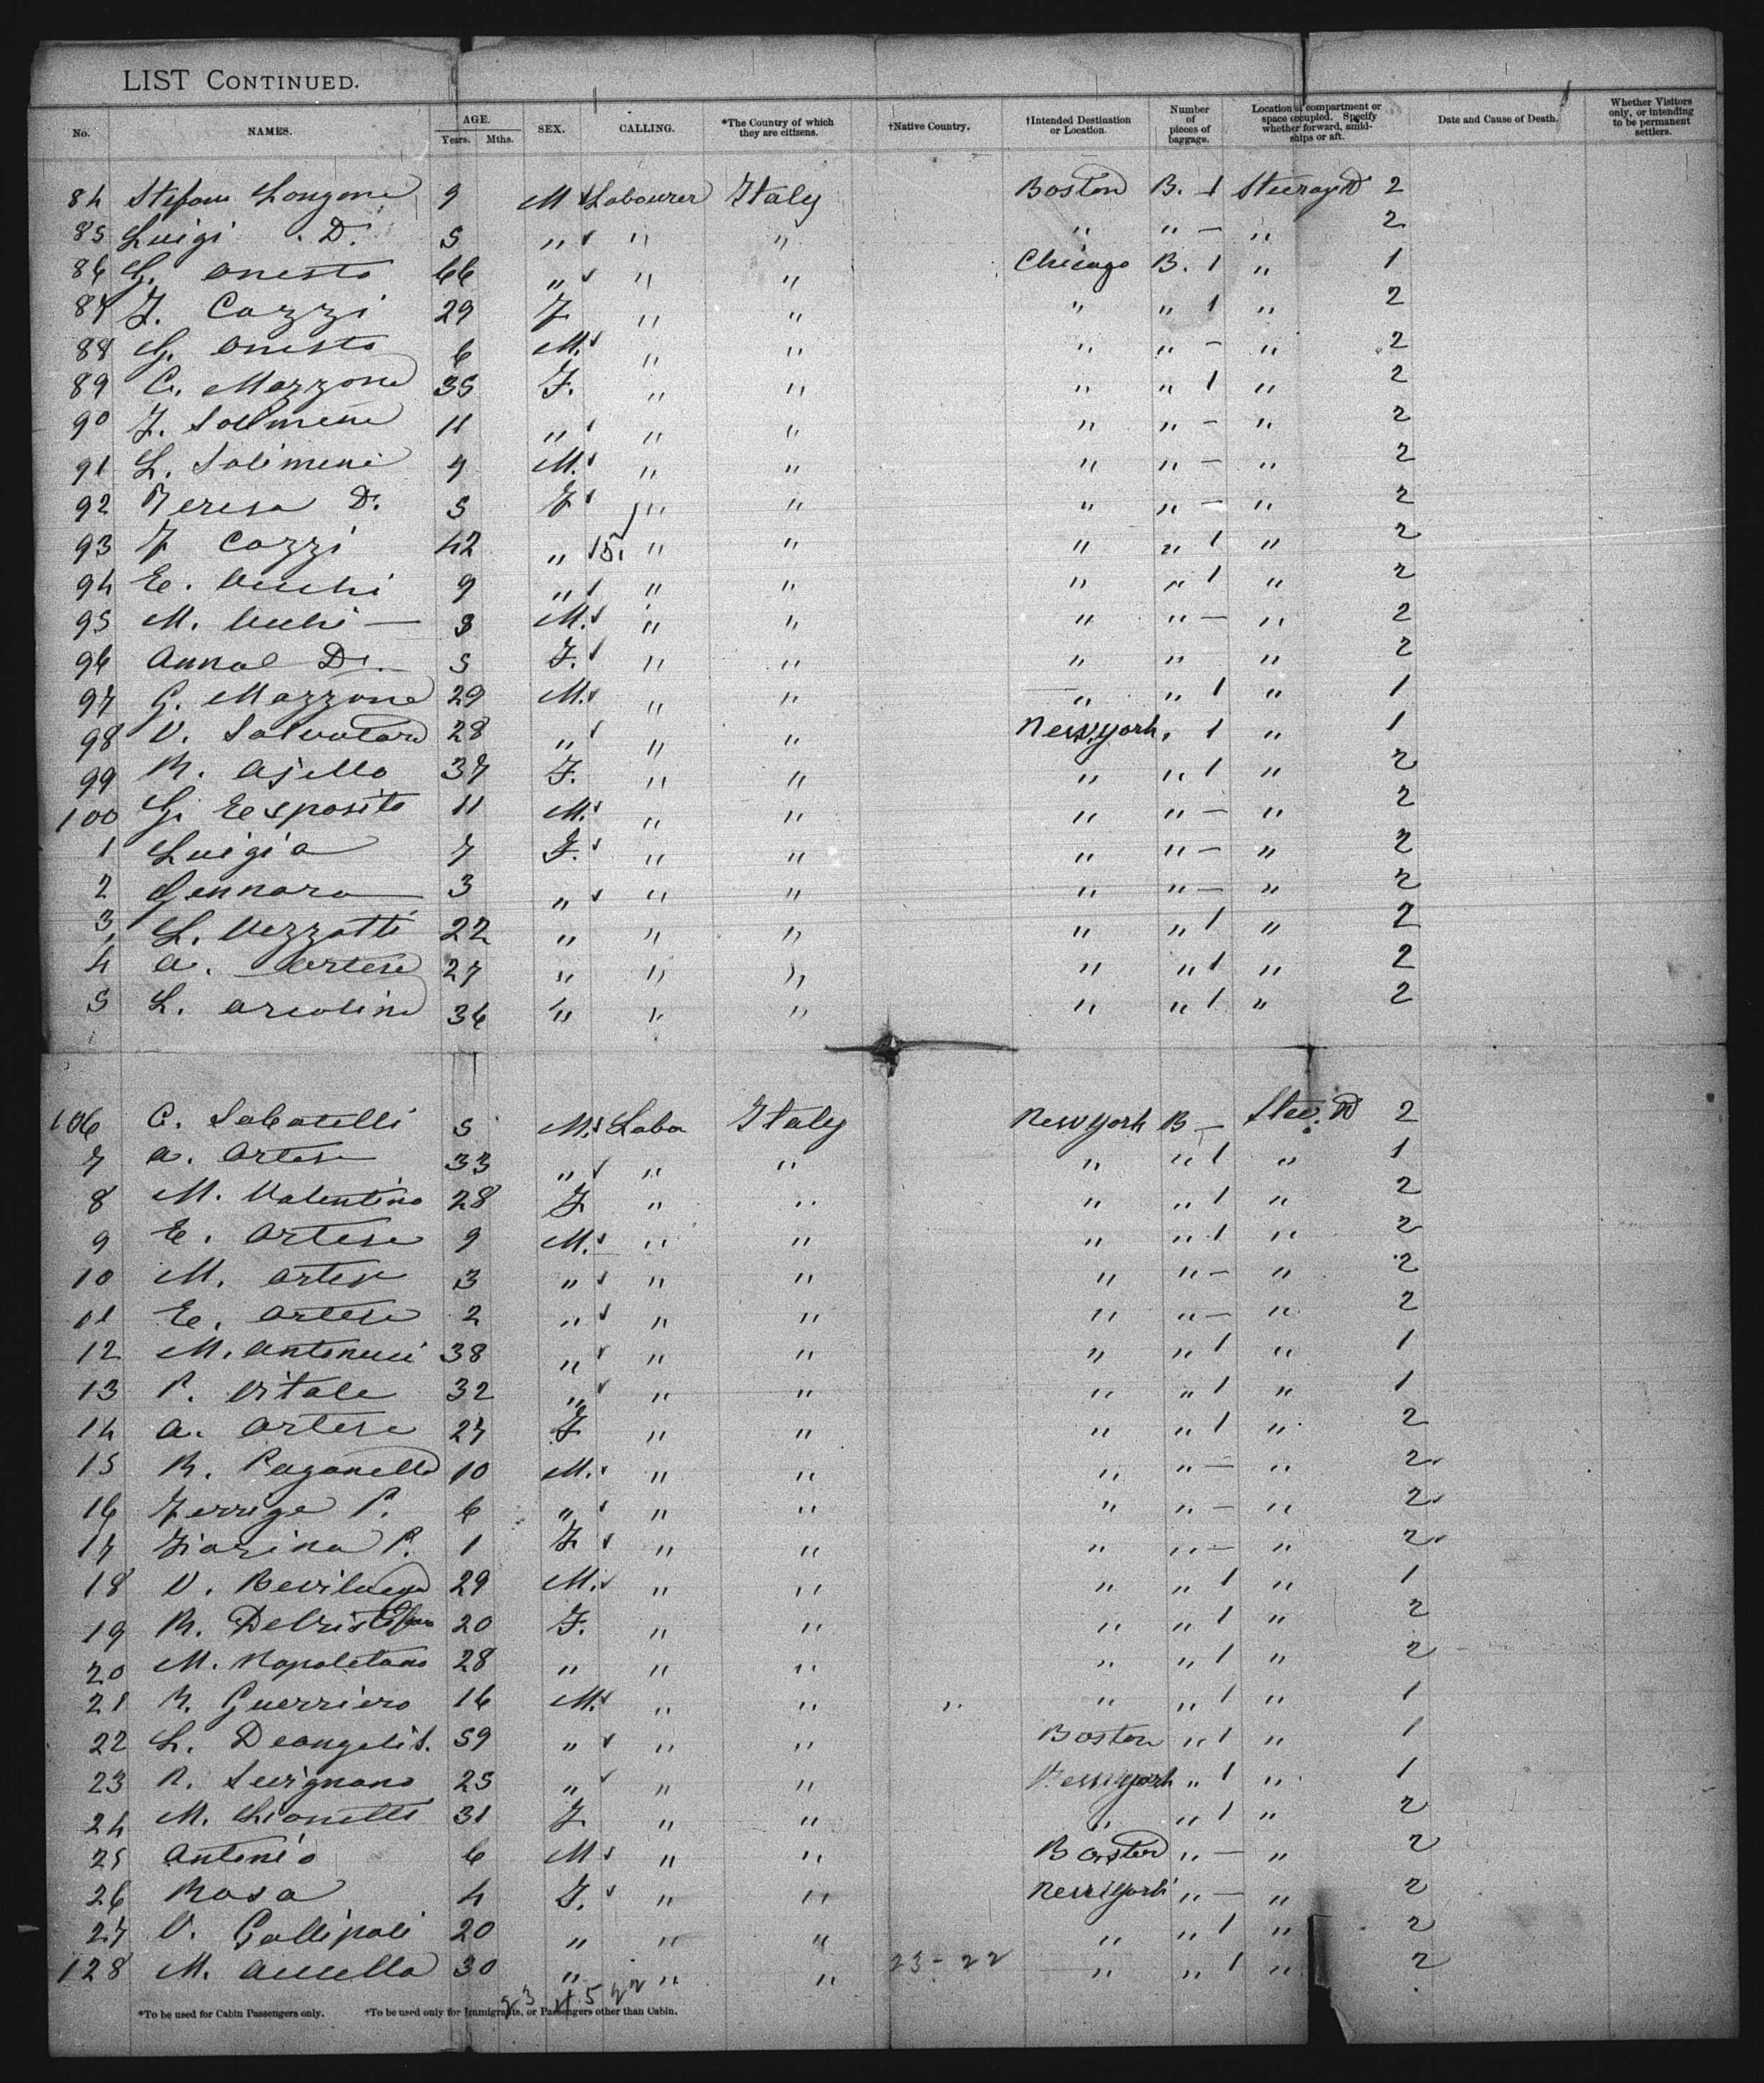 LIST CONTINUED.
No. NAMES. AGE. Years. Mths. SEX. CALLING. *The Country of which they are citizens. †Native Country. †Intended Destination or Location. Number of pieces of baggage. Location of compartment or space occupied. Specify whether forward, amidships or aft. Date and Cause of Death. Whether Visitors only, or intending to be permanent settlers.
84 Longone 9 M Labourer Italy Boston B. 1 2
85 Luigi D. 5 " " " " " — " 2
86 G. Onesto 66 " " " Chicago B. 1 " 1
87 F. Cozzi 29 F " " " " 1 " 2
88 G. Onesto 6 M. " " " " — " 2
89 C. Mazzone 35 F. " " " " 1 " 2
90 F. 11 " " " " " — " 2
91 L. Solimeni 9 M. " " " " — " 2
92 Teresa D. 5 F " " " " — " 2
93 F Cozzi 42 " 15 " " " " 1 " 2
94 E. 9 " " " " " 1 " 2
95 M. — 8 M. " " " " — " 2
96 D. 5 F. " " " " " 2
97 G. Mazzone 29 M. " " " " 1 " 1
98 V. Salvatore 28 " " " New york " 1 " 1
99 R. Ajello 37 F. " " " " 1 " 2
100 G. Eesposito 11 M. " " " " — " 2
1 Luigia 7 F. " " " " — " 2
2 Gennaro 3 " " " " " — " 2
3 L. Vezzatti 22 " " " " " 1 " 2
4 A. Artese 27 " " " " " 1 " 2
5 L. 36 " " " " " 1 " 2
106 C. Sabatelli 5 M. Labo Italy New york B — Stee. 2
7 A. Artese 33 " " " " " 1 " 1
8 M. Valentino 28 F " " " " 1 " 2
9 E. Artese 9 M. " " " " 1 " 2
10 M. Artese 3 " " " " " — " 2
11 E. Artese 2 " " " " " — " 2
12 M. Antonucci 38 " " " " " 1 " 1
13 P. Vitale 32 " " " " " 1 " 1
14 A. Artese 27 F " " " " 1 " 2
15 R. Paganello 10 M. " " " " — " 2
16 P. 6 " " " " " — " 2
17 P. 1 F " " " " — " 2
18 V. Bevilacqua 29 M. " " " " 1 " 1
19 R. 20 F. " " " " 1 " 2
20 M. Napoletano 28 " " " " " 1 " 2
21 R. Guerriero 16 M. " " " " " 1 " 1
22 L. Deangelis. 59 " " " Boston " 1 " 1
23 25 " " " New york " 1 " 1
24 M. 31 F " " " " 1 " 2
25 Antonio 6 M " " Boston " — " 2
26 Rosa 4 F. " " New york " — " 2
27 V. Gallipoli 20 " " " " " 1 " 2
128 M. 30 " " " 23-22 " " 1 " 2
*To be used for Cabin Passengers only. †To be used only for Immigrants, or Passengers other than Cabin.